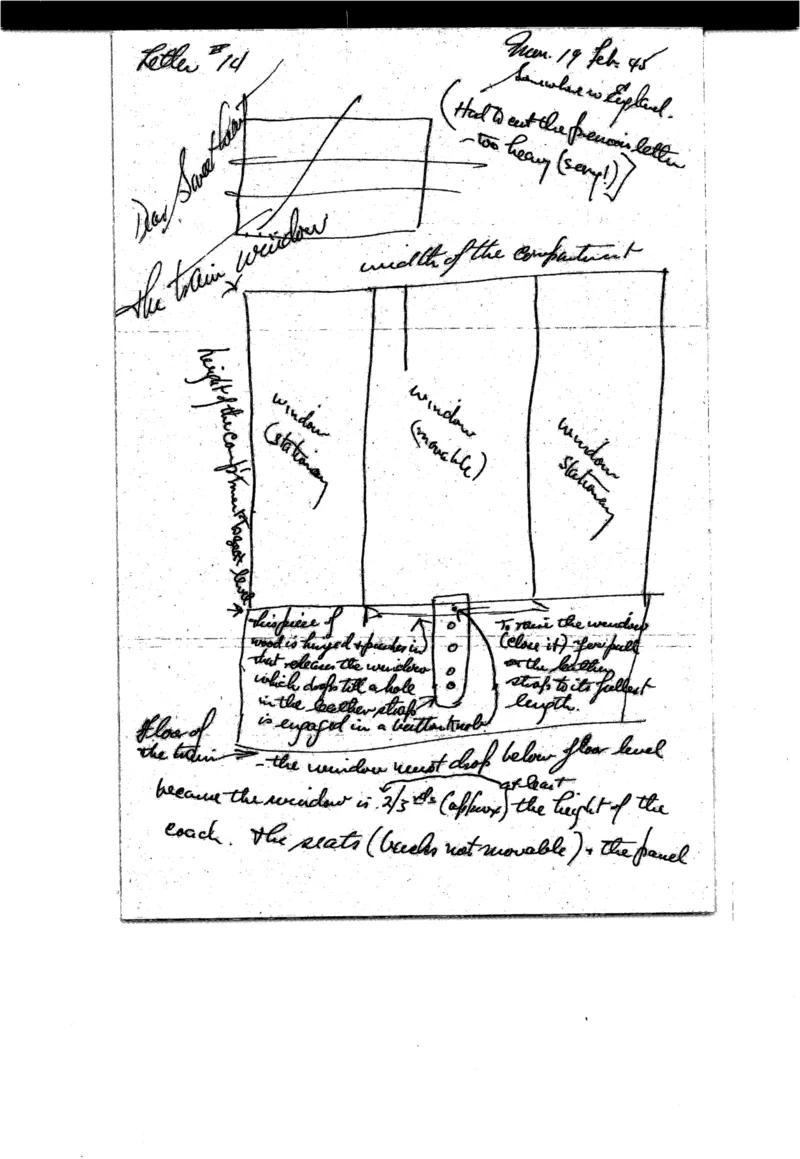 Letter #14
Mon. 19 Feb. 45
Somewhere in England.
(Had to cut the previous letter
- too heavy (sorry!))
Dear Sweetheart
The train window
width of the compartment
height of the comp'tment to seat level
window
(stationary)
window
(movable)
window
stationary
this piece of
wood is hinged & pushes in
that releases the window
which drops till a hole
in the leather strap
is engaged in a button knob
To raise the window
(close it) pull
on the leather
strap to its fullest
length.
Floor of
the train
- the window must drop below floor level
at least
because the window is 2/3 rds (approx) the height of the
coach. The seats ( not movable) & the panel